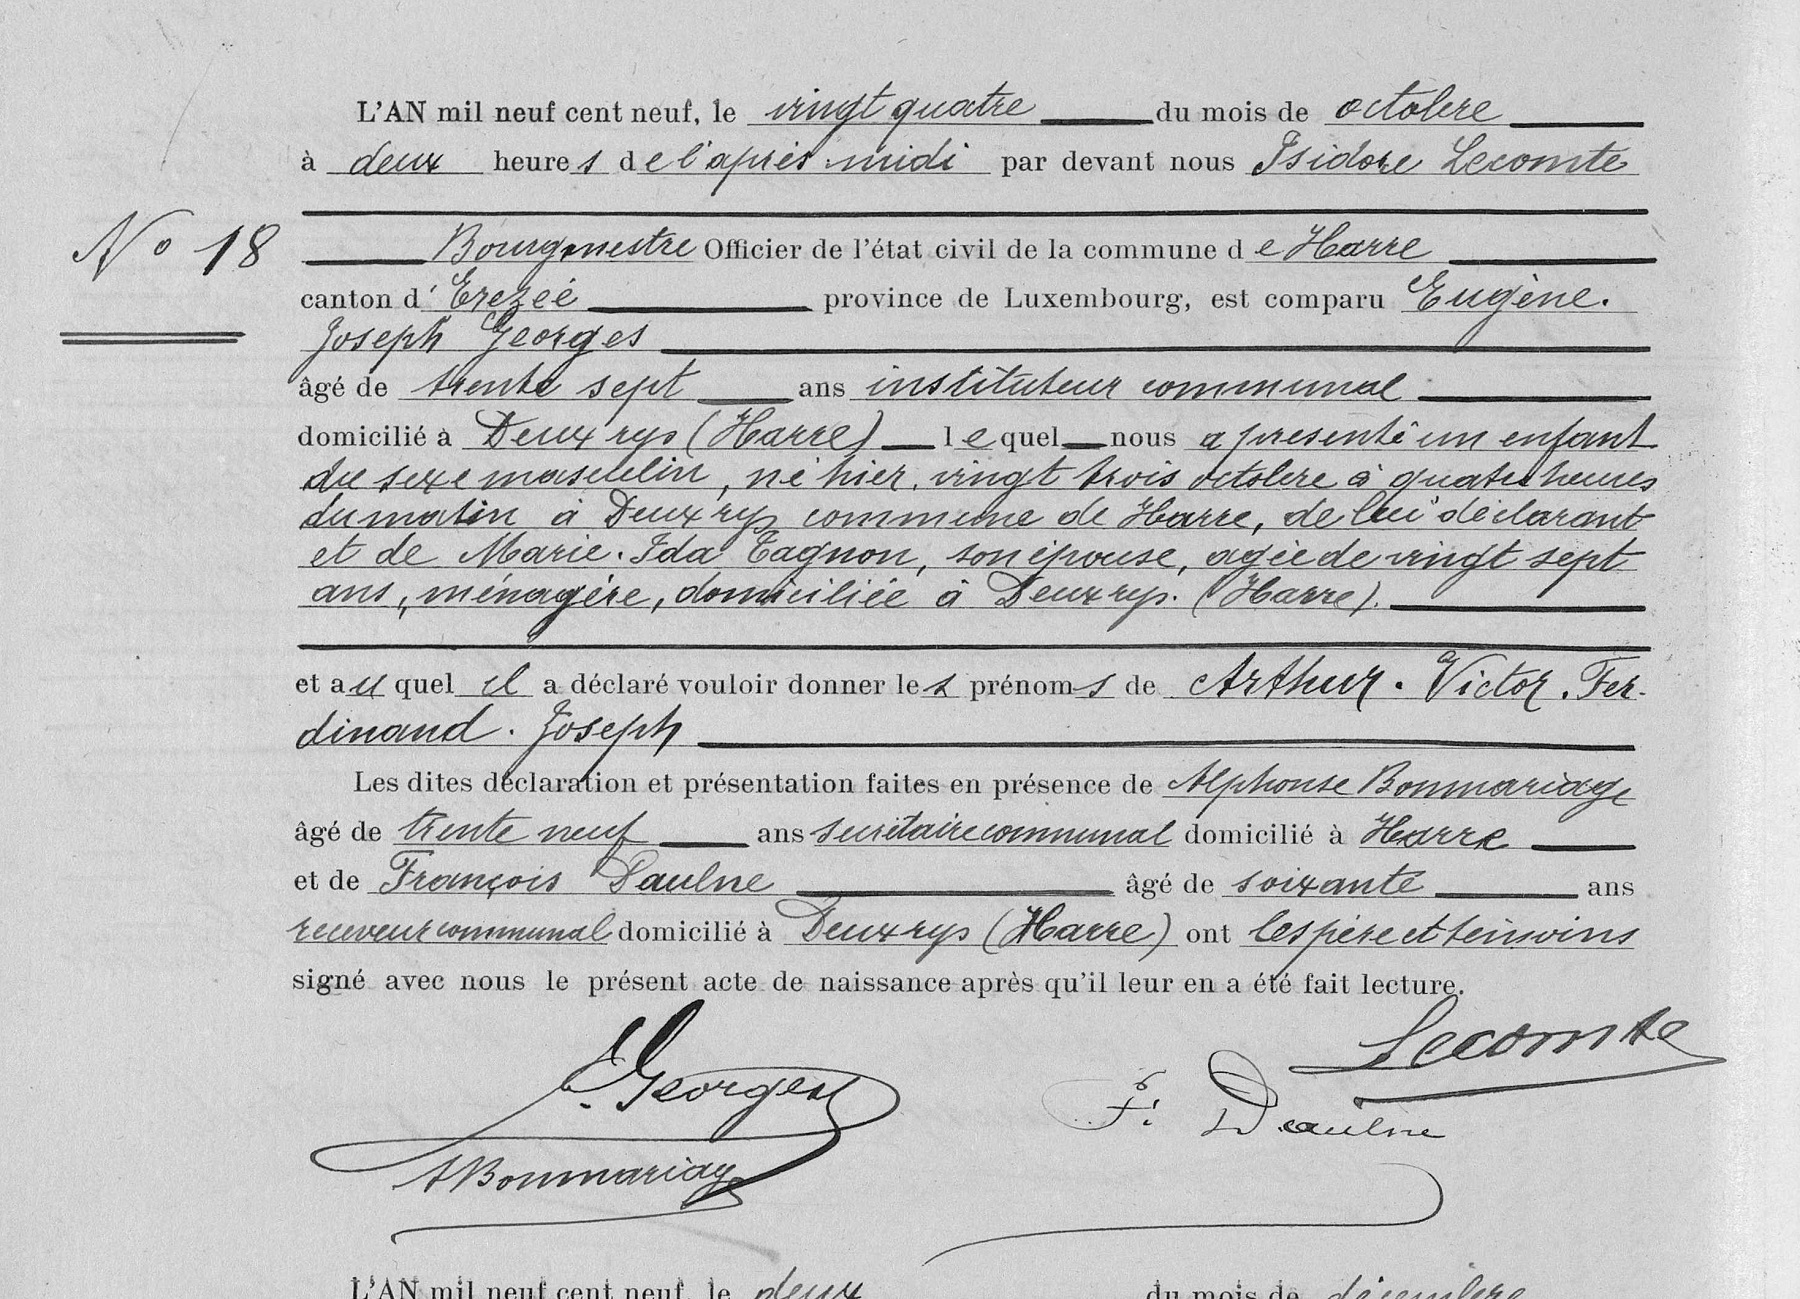 L'AN mil neuf cent neuf, le vingt quatre du mois de octobre
à deux heures de l'après-midi par devant nous Isidore Lecomte
No 18
Bourgmestre Officier de l'état civil de la commune de Harre
canton d'Erezée province de Luxembourg, est comparu Eugène.
Joseph Georges
âgé de trente sept ans instituteur communal
domicilié à Deux rys (Harre) lequel nous a présenté un enfant
du sexe masculin, né hier, vingt trois octobre à quatre heures
du matin à Deux rys commune de Harre, de lui déclarant
et de Marie. Ida Tagnon, son épouse, agée de vingt sept
ans, ménagère, domiciliée à Deux rys. (Harre).
et au quel il a déclaré vouloir donner les prénoms de Arthur. Victor. Fer-
dinand. Joseph
Les dites déclaration et présentation faites en présence de Alphonse Bonmariage
âgé de trente neuf ans secrétaire communal domicilié à Harre
et de François Daulne âgé de soixante ans
receveur communal domicilié à Deux rys (Harre) ont les père et témoins
signé avec nous le présent acte de naissance après qu'il leur en a été fait lecture.
Lecomte
E. Georges
F. Daulne
A Bonmariage
L'AN mil neuf cent neuf, le deux du mois de décembre